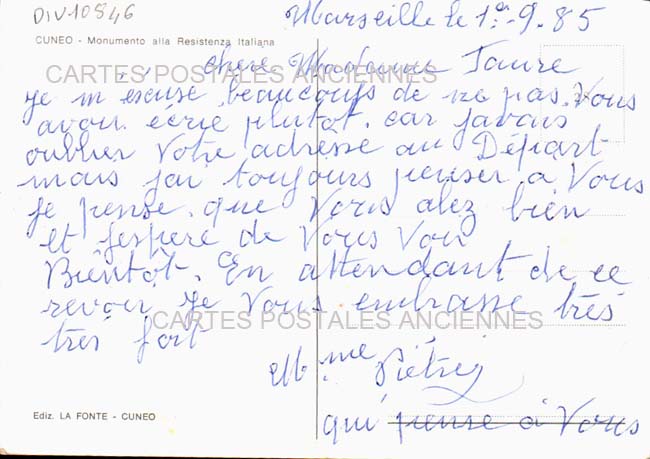 DIV10846
Marseille le 1er-9.85
CUNEO - Monumento alla Resistenza Italiana
chère Madame Faure
CARTES POSTALES ANCIENNES
je m'éscuse beaucoups de ne pas Vous
avoir ecrie plutôt. car javais
oublier Votre adrèsse au Départ
mais jai toujours penser à Vous
Je pense que Vous alez bien
et jespere de Vous Voir
Bientôt. En attendant de ce
revoir je Vous embrasse très
CARTES POSTALES ANCIENNES
très fort
Mme Piétrej
Ediz. LA FONTE - CUNEO
qui pense à Vous